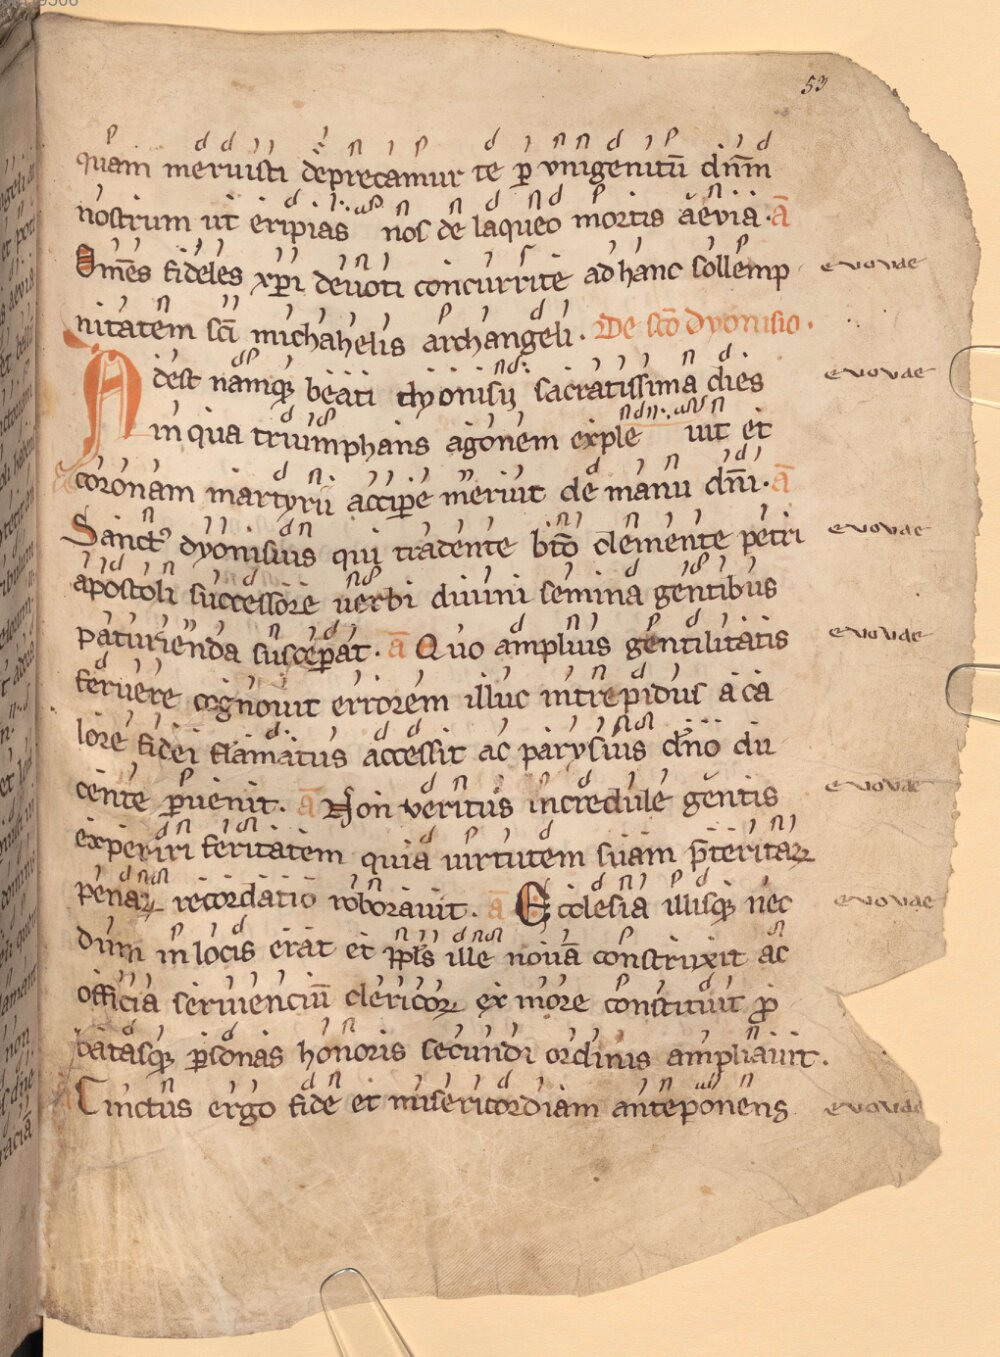 53
quam meruisti deprecamur te ꝑ vnigenitū dn̄m
nostrum ut eripias nos de laqueo mortis aeviā · ā
Om̄es fideles xp̄i deuoti concurrite ad hanc sollemp euouae
nitatem sc̄i michahelis archangeli · De sc̄o dyonisio ·
Adest namq; beati dyonisij sacratissima dies euouae
in qua triumphans agonem exple uit et
coronam martyrii accipere meruit de manu dn̄i · ā
Sanctꝰ dyonisius qui tradente bt̄o clemente petri euouae
apostoli successore uerbi diuini semina gentibus
paturienda susceꝑat · ā Quo amplius gentilitatis euouae
feruere cognouit errorem illuc intrepidus a ca
lore fidei flamatus accessit ac parysius dn̄o du
cente ꝑuenit · ā Non veritus incredule gentis euouae
experiri feritatem quia uirtutem suam p̄teritaꝝ
penaꝝ recordatio roborauit · ā Ecclesia illisq; nec euouae
dum in locis erat et pp̄ls ille nouā construxit ac
officia seruienciū clericoꝝ ex more constituit ꝓ
batasq; ꝑsonas honoris secundi ordinis ampliauit ·
Cinctus ergo fide et misericordiam anteponens euouae